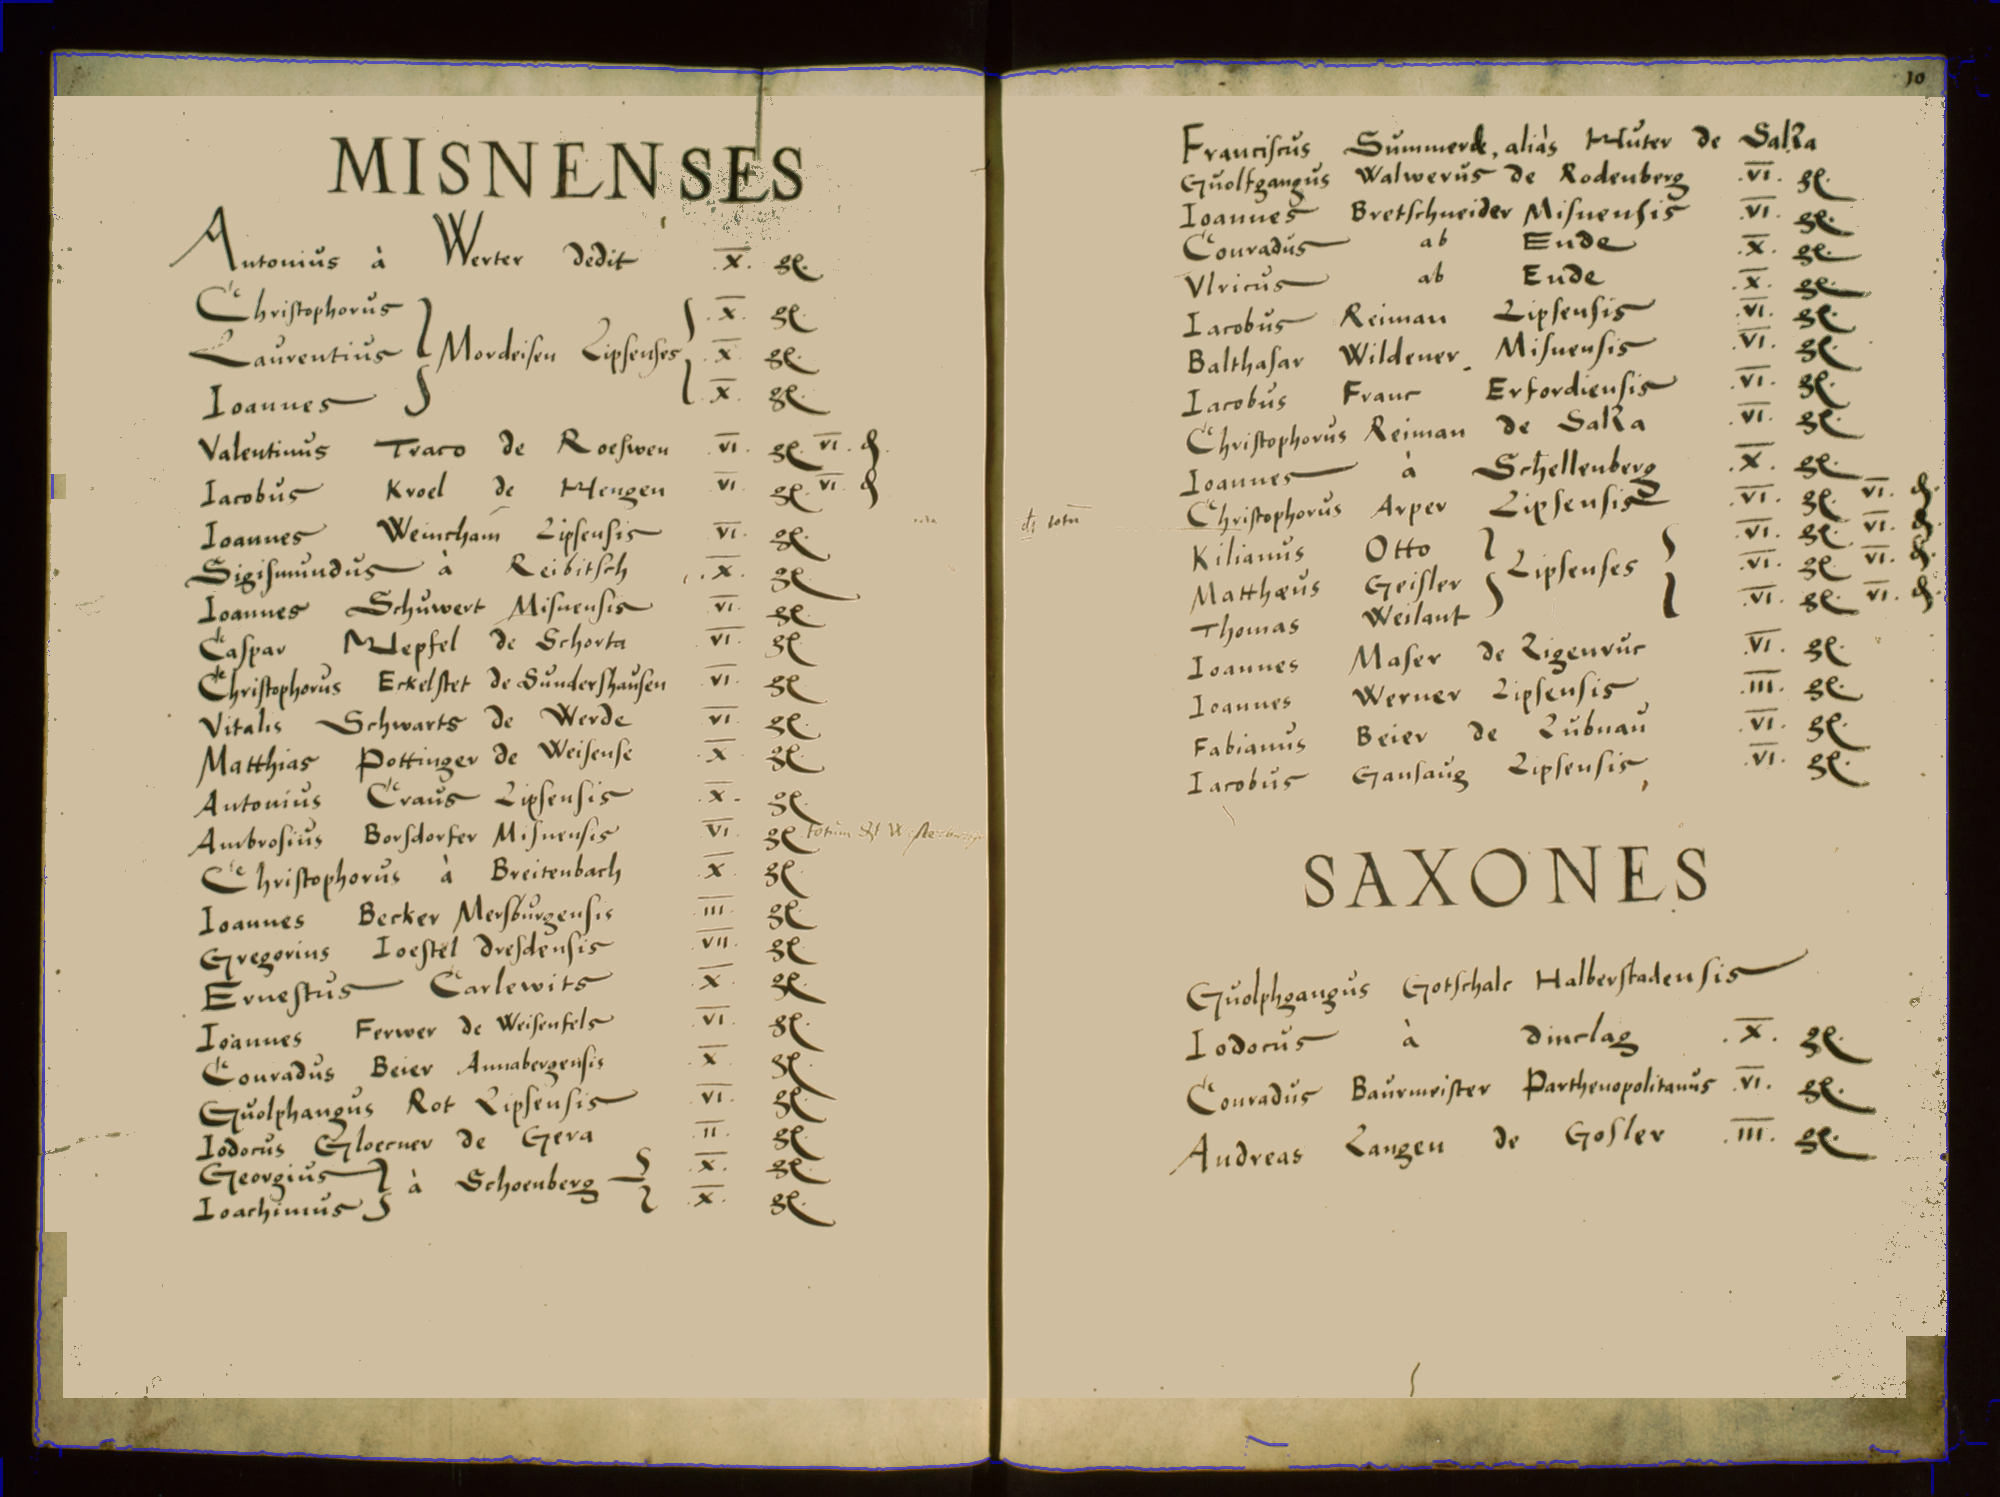 MISNENSES
Antonius à Werter dedit .X. gl.
Christophorus .X. gl.
Laurentius Mordeisen Lipsenses .X. gl.
Ioannes .X. gl.
Valentinus Traco de Roeswen .VI. gl. VI. d.
Iacobus Kroel de Hengen .VI. gl. VI. d
Ioannes Weincham Lipsensis .VI. gl.
Sigismundus à Reibitsch .X. gl.
Ioannes Schuwert Misnensis .VI. gl.
Caspar Nepfel de Schorta .VI. gl.
Christophorus Eckelstet de Sundershausen .VI. gl.
Vitalis Schwarts de Werde .VI. gl.
Matthias Pottinger de Weisense .X. gl.
Antonius Craus Lipsensis .X. gl.
Ambrosius Borsdorfer Misnensis .VI. gl. totum
Christophorus à Breitenbach .X. gl.
Ioannes Becker Mersburgensis .III. gl.
Gregorius Ioestel Dresdensis .VII. gl.
Ernestus Carlewits .X. gl.
Ioannes Ferwer de Weisenfels .VI. gl.
Conradus Beier Annabergensis .X. gl.
Guolphangus Rot Lipsensis .VI. gl.
Iodocus Gloecner de Gera .II. gl.
Georgius .X. gl.
à Schoenberg
Ioachimus .X. gl.
10
Franciscus Summerde, aliàs Huter de Salka
Guolfgangus Walwerus de Rodenberg .VI. gl.
Ioannes Bretschneider Misnensis .VI. gl.
Conradus ab Ende .X. gl.
Vlricus ab Ende .X. gl.
Iacobus Reiman Lipsensis .VI. gl.
Balthasar Wildener Misnensis .VI. gl.
Iacobus Franc Erfordiensis .VI. gl.
Christophorus Reiman de Salka .VI. gl.
Ioannes à Schellenberg .X. gl.
Christophorus Arper Lipsensis .VI. gl. VI. d.
Kilianus Otto .VI. gl. VI. d.
Matthæus Geisler Lipsenses .VI. gl. VI. d.
Thomas Weilant .VI. gl. VI. d.
Ioannes Maser de Zigenruc .VI. gl.
Ioannes Werner Lipsensis .III. gl.
Fabianus Beier de Lubnau .VI. gl.
Iacobus Gansaug Lipsensis .VI. gl.
SAXONES
Guolphgangus Gotschalc Halberstadensis
Iodocus à Dinclag .X. gl.
Conradus Baurmeister Parthenopolitanus .VI. gl.
Andreas Langen de Gosler .III. gl.